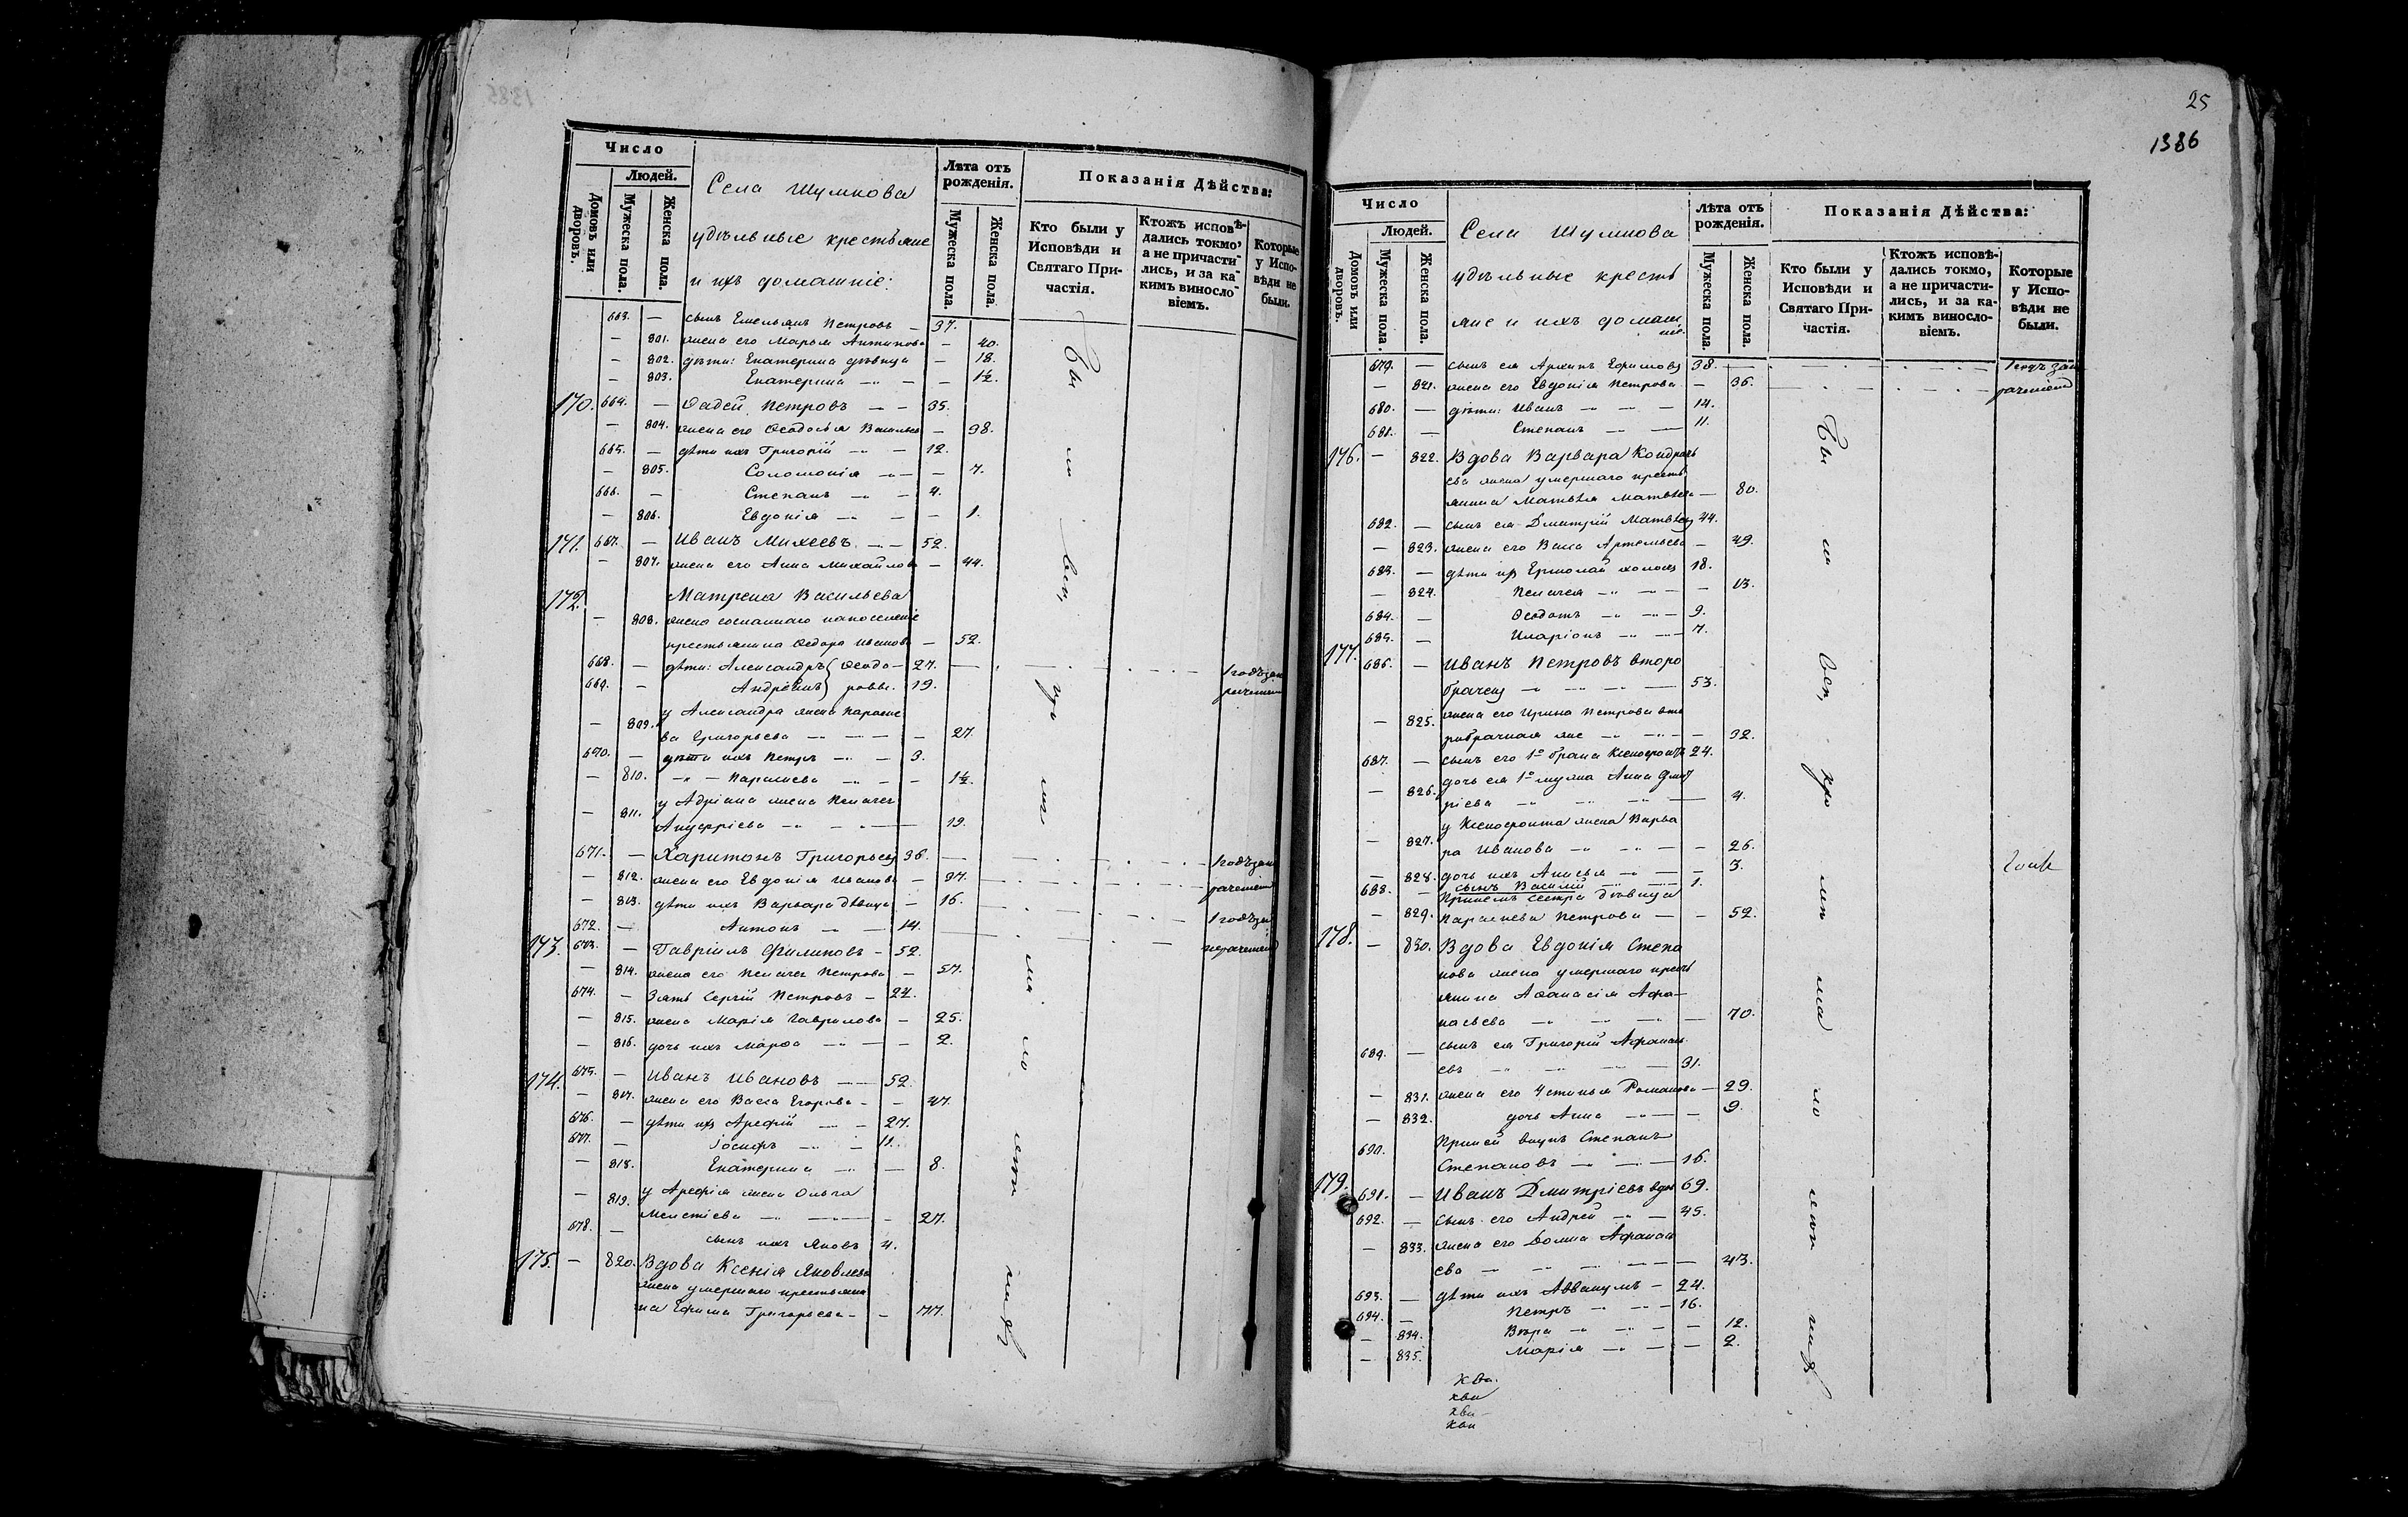 1385
Число
Людей.
Домовъ или дворовъ.
Мужеска пола.
Женска пола.
Села Шумкова
удѣльные крестьяне
и ихъ домашніе:
Лѣта отъ рожденія.
Мужеска пола.
Женска пола.
Показанія Дѣйства:
Кто были у Исповѣди и Святаго Причастія.
Ктожъ исповѣдались токмо, а не причастились, и за какимъ винословіемъ.
Которые у Исповѣди не были.
663. — сынъ Емельянъ Петровъ — 37.
— 801. жена его Марья Антипова — 40.
— 802. дѣти: Екатерина дѣвица — 18.
— 803. Екатерина — — 1½.
170. 664. — Фадей Петровъ — — 35.
— 804. жена его Ѳеодосья Васильев — 38.
665. — дѣти ихъ Григорій — — 12.
— 805. Соломонія — — 7.
666. — Степанъ — — 4.
— 806. Евдокія — — — 1.
171. 667. — Иванъ Михеевъ — — 52.
— 807. жена его Анна Михайлова — 44.
172. Матрена Васильева
— 808. жена сосланнаго на поселеніе
крестьянина Ѳедора Иванов — 52.
668. — дѣти: Александръ Ѳеодо — 27. 1 годъ за не
669. — Андреянъ ровы. 19. раченіемъ
у Александра жена Параске
— 809. ва Григорьева — — — 27.
670. — дѣти ихъ Петръ — — 3.
— 810. — Параскева — — — 1½.
у Адріана жена Пелагея
— 811. Андреева — — — 19.
671. — Харитонъ Григорьевъ 36. 1 годъ за не
— 812. жена его Евдокія Иванова — 37. раченіемъ
— 813. дѣти ихъ Варвара дѣвица — 16. 1 годъ за
672. — Антонъ — — 14. нераченіемъ
173. 673. — Гавріилъ Филиповъ — 52.
— 814. жена его Пелагея Петрова — 57.
674. — Зять Сергій Петровъ — 24.
— 815. жена Марія Гаврилова — 25.
— 816. дочь ихъ Марѳа — — 2.
174. 675. — Иванъ Ивановъ — — 52.
— 817. жена его Васса Егорова — — 47.
676. — дѣти ихъ Арефій — — 27.
677. — Іосифъ — — 11.
— 818. Екатерина — — 8.
— 819. у Арефія жена Ольга
Мелетіева — — — 27.
678. — сынъ ихъ Яковъ 4.
175. — 820. Вдова Ксенія Яковлева
жена умершаго крестьяни
на Ефима Григорьева — — 77.
25
1386
Число
Людей.
Домовъ или дворовъ.
Мужеска пола.
Женска пола.
Села Шумкова
удѣльные кресть
яне и ихъ домаш
ніе.
Лѣта отъ рожденія.
Мужеска пола.
Женска пола.
Показанія Дѣйства:
Кто были у Исповѣди и Святаго Причастія.
Ктожъ исповѣдались токмо, а не причастились, и за какимъ винословіемъ.
Которые у Исповѣди не были.
679. — сынъ ея Архипъ Ефимовъ 38. 1 годъ за не
— 821. жена его Евдокія Петрова — 36. раченіемъ
680. — дѣти: Иванъ — — — 14.
681. — Степанъ — — 11.
176. — 822. Вдова Варвара Кондрать
ева жена умершаго кресть
янина Матвѣя Матвѣева — 80.
682. — сынъ ея Дмитрій Матвѣевъ 44.
— 823. жена его Васса Артемьева — 49.
683. — дѣти ихъ Ермолай холостъ 18.
— 824. Пелагея — — — 13.
684. — Ѳеодотъ — — 9.
685. — Иларіонъ — — 7.
177. 686. — Иванъ Петровъ второ
брачецъ — — — 53.
— 825. жена его Ирина Петрова вто
робрачная же — — — 32.
687. — сынъ его 1го брака Ксенофонтъ 24.
— 826. дочь ея 1го мужа Анна Дмит
ріева — — — 4.
у Ксенофонта жена Варва
— 827. ра Иванова — — — 26.
— 828. дочь ихъ Анисья — — 3.
688. — сынъ Василій — — 1.
При немъ сестра дѣвица
— 829. Параскева Петрова — — 52.
178. — 830. Вдова Евдокія Степа
нова жена умершаго кресть
янина Аѳанасія Афа—
насьева — — — 70.
689. — сынъ ея Григорій Афанась
евъ — — — 31.
— 831. жена его Устинья Романова — 29.
— 832. дочь Анна — — — 9.
690. При ней внукъ Степанъ
Степановъ — — 16.
179. 691. — Иванъ Дмитріевъ вдов 69.
692. — сынъ его Андрей — — 45.
— 833. жена его Домна Афанась
ева — — — — 43.
693. — дѣти ихъ Аввакумъ — 24.
694. — Петръ — — — 16.
— 834. Вѣра — — — 12.
— 835. Марія — — — 2.